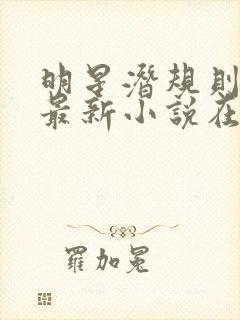 明星潛規則
最新小說在
羅加冕